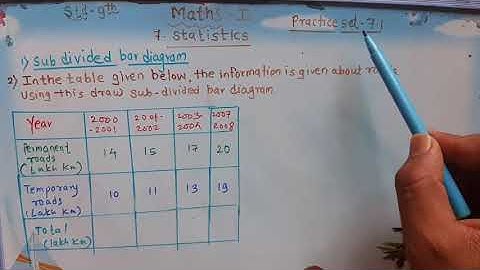 Std-9th Maths-I Practice set-7.1
7. Statistics
1) Sub divided bar diagram
2) In the table given below, the information is given about
Using this draw sub-divided bar diagram
Year 2000-2001 2001-2002 2007-2008
Permanent roads (Lakh Km) 14 15 17 20
Temporary roads (Lakh Km) 10 11 13 19
Total (lakh Km)